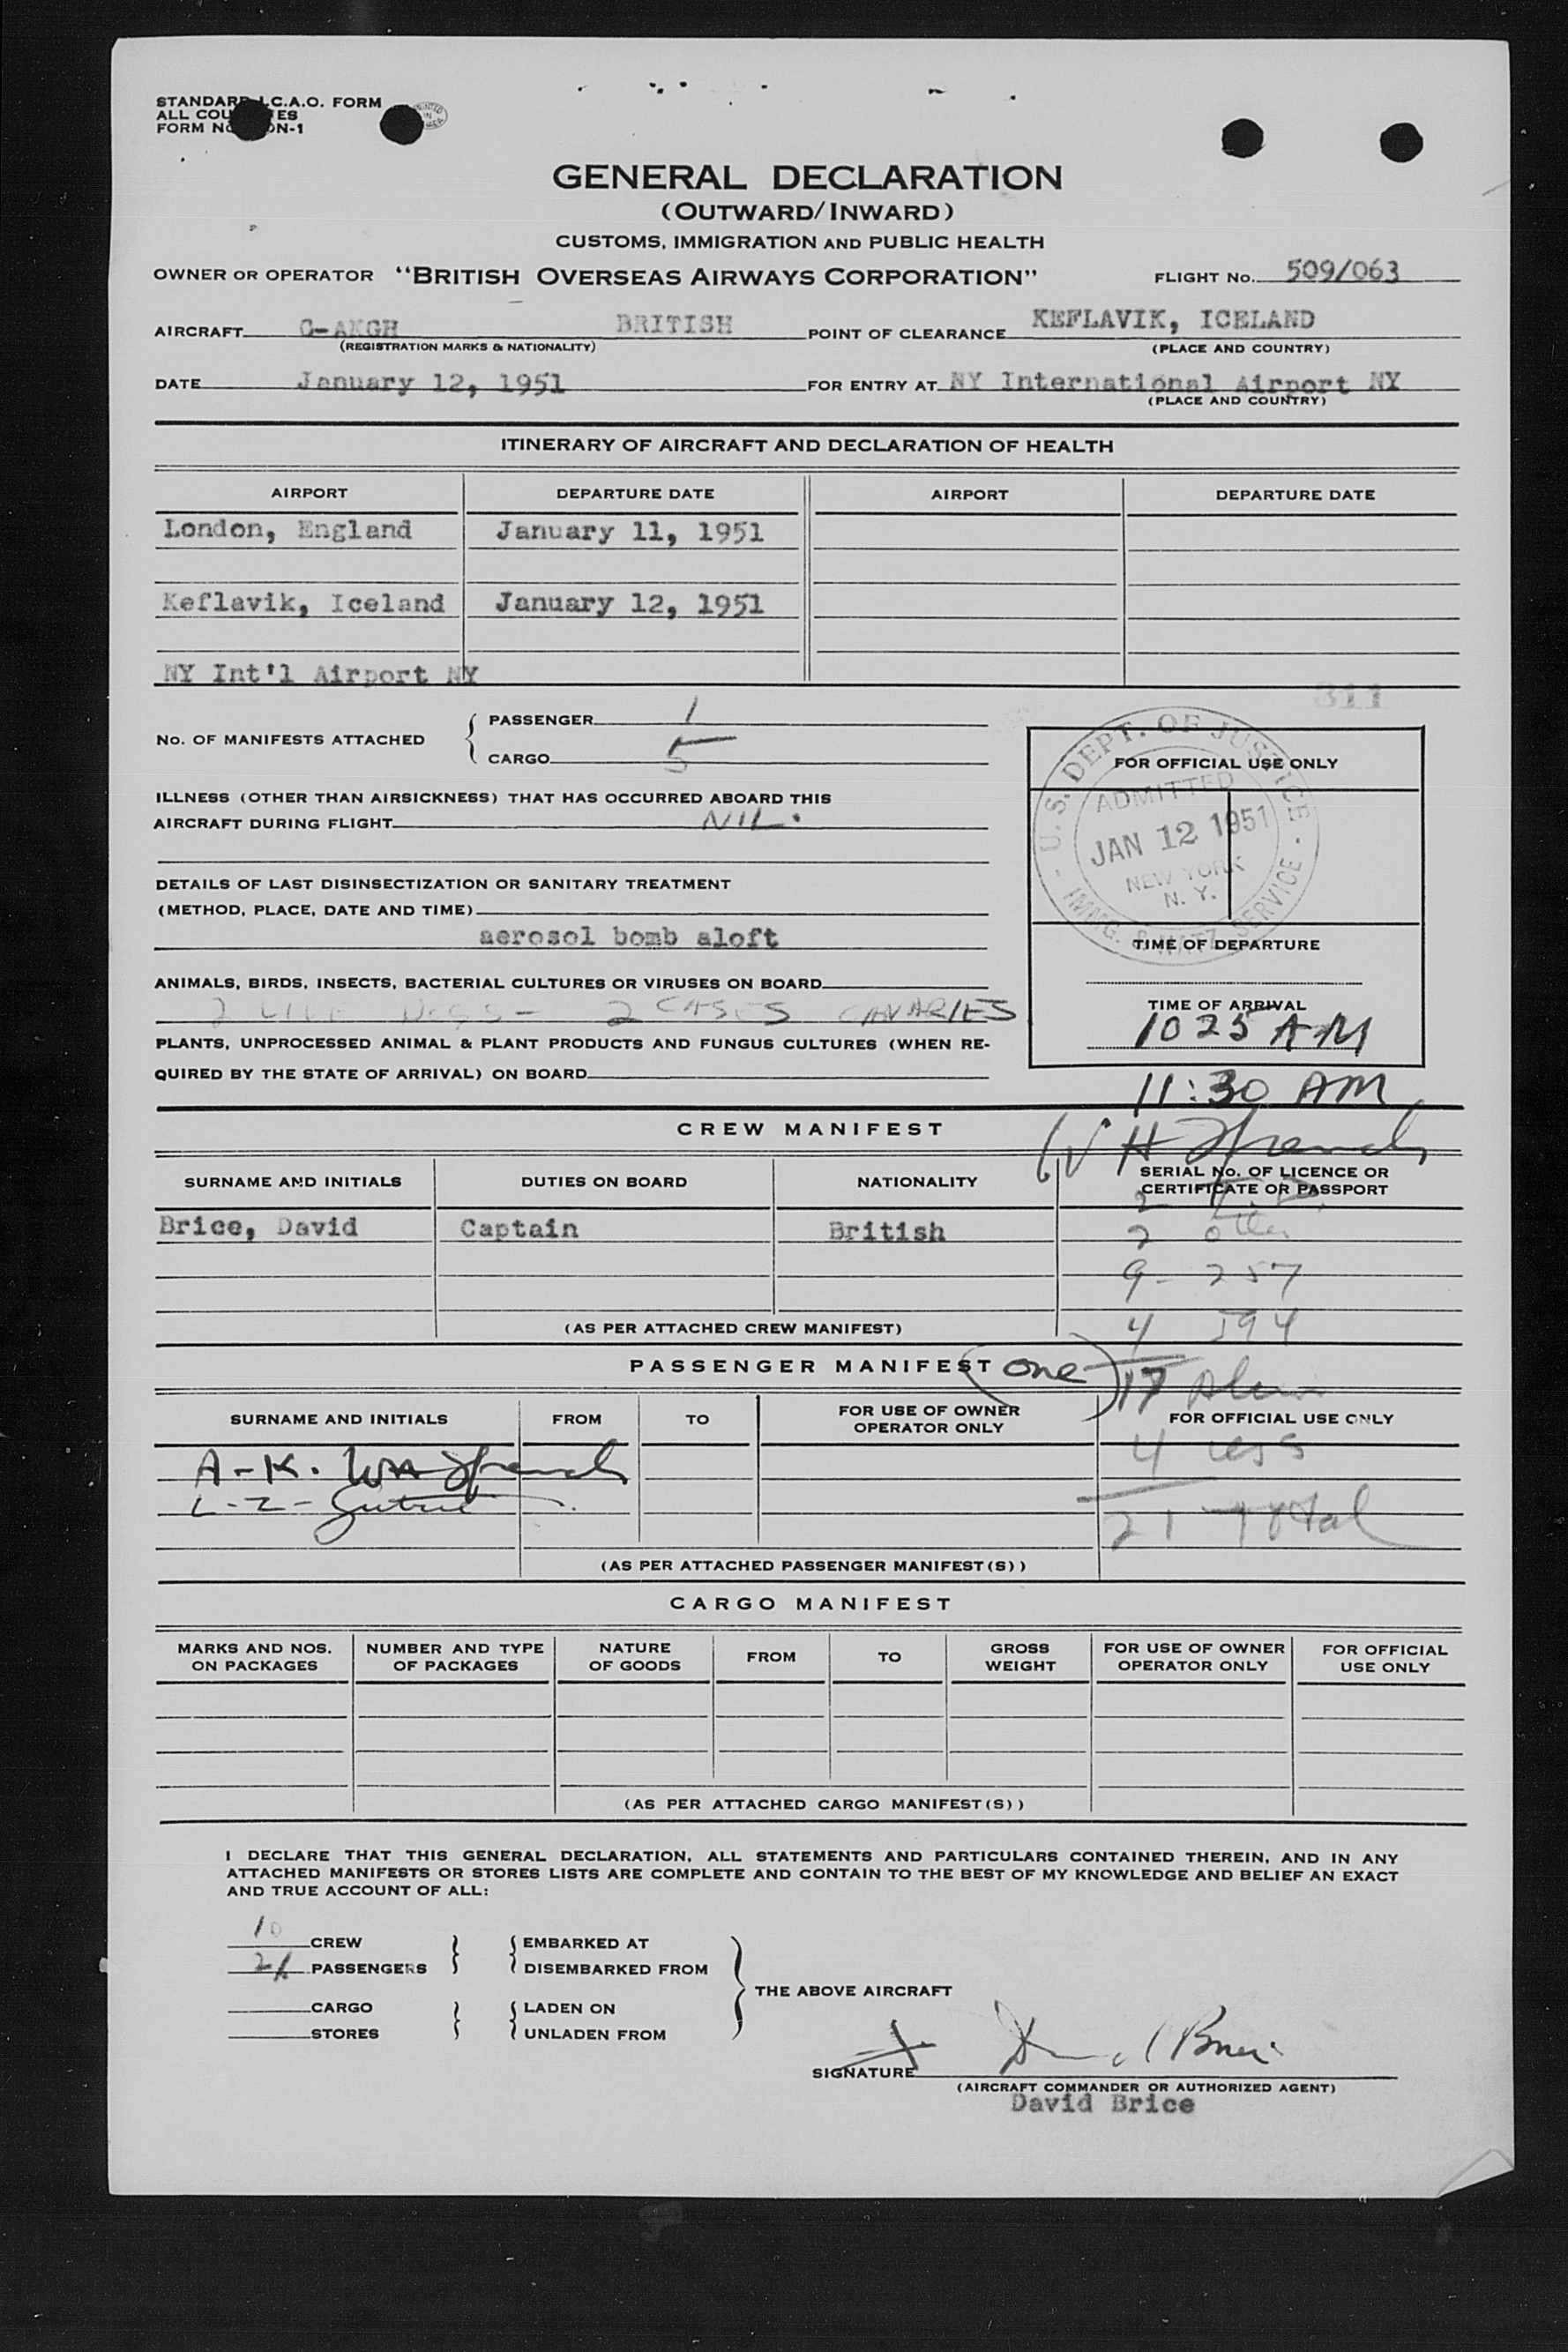 STANDARD I.C.A.O. FORM
ALL COUNTRIES
FORM No. CON-1
GENERAL DECLARATION
(OUTWARD/INWARD)
CUSTOMS, IMMIGRATION AND PUBLIC HEALTH
OWNER OR OPERATOR "BRITISH OVERSEAS AIRWAYS CORPORATION" FLIGHT No. 509/063
AIRCRAFT G-AKGH BRITISH POINT OF CLEARANCE KEFLAVIK, ICELAND
(REGISTRATION MARKS & NATIONALITY) (PLACE AND COUNTRY)
DATE January 12, 1951 FOR ENTRY AT NY International Airport NY
(PLACE AND COUNTRY)
ITINERARY OF AIRCRAFT AND DECLARATION OF HEALTH
AIRPORT DEPARTURE DATE AIRPORT DEPARTURE DATE
London, England January 11, 1951
Keflavik, Iceland January 12, 1951
NY Int'l Airport NY
311
No. OF MANIFESTS ATTACHED
PASSENGER 1
CARGO 5
FOR OFFICIAL USE ONLY
U.S. DEPT. OF JUSTICE - IMMIG. & NATZ. SERVICE -
ADMITTED
JAN 12 1951
NEW YORK
N. Y.
ILLNESS (OTHER THAN AIRSICKNESS) THAT HAS OCCURRED ABOARD THIS
AIRCRAFT DURING FLIGHT NIL.
DETAILS OF LAST DISINSECTIZATION OR SANITARY TREATMENT
(METHOD, PLACE, DATE AND TIME)
aerosol bomb aloft
TIME OF DEPARTURE
ANIMALS, BIRDS, INSECTS, BACTERIAL CULTURES OR VIRUSES ON BOARD
2 LIVE DOGS - 2 CASES CANARIES
TIME OF ARRIVAL
1025 AM
PLANTS, UNPROCESSED ANIMAL & PLANT PRODUCTS AND FUNGUS CULTURES (WHEN RE-
QUIRED BY THE STATE OF ARRIVAL) ON BOARD
11:30 AM
CREW MANIFEST
W H French
SURNAME AND INITIALS DUTIES ON BOARD NATIONALITY SERIAL No. OF LICENCE OR
CERTIFICATE OR PASSPORT
2
Brice, David Captain British
2 other
9 - 257
4 594
(AS PER ATTACHED CREW MANIFEST)
PASSENGER MANIFEST (one)
17
SURNAME AND INITIALS FROM TO FOR USE OF OWNER
OPERATOR ONLY
FOR OFFICIAL USE ONLY
4 USS
A-K. WH French
L-Z-
21 Total
(AS PER ATTACHED PASSENGER MANIFEST(S))
CARGO MANIFEST
MARKS AND NOS.
ON PACKAGES
NUMBER AND TYPE
OF PACKAGES
NATURE
OF GOODS
FROM
TO
GROSS
WEIGHT
FOR USE OF OWNER
OPERATOR ONLY
FOR OFFICIAL
USE ONLY
(AS PER ATTACHED CARGO MANIFEST(S))
I DECLARE THAT THIS GENERAL DECLARATION, ALL STATEMENTS AND PARTICULARS CONTAINED THEREIN, AND IN ANY
ATTACHED MANIFESTS OR STORES LISTS ARE COMPLETE AND CONTAIN TO THE BEST OF MY KNOWLEDGE AND BELIEF AN EXACT
AND TRUE ACCOUNT OF ALL:
10 CREW
21 PASSENGERS
EMBARKED AT
DISEMBARKED FROM
CARGO
STORES
LADEN ON
UNLADEN FROM
THE ABOVE AIRCRAFT
SIGNATURE X David Brice
(AIRCRAFT COMMANDER OR AUTHORIZED AGENT)
David Brice